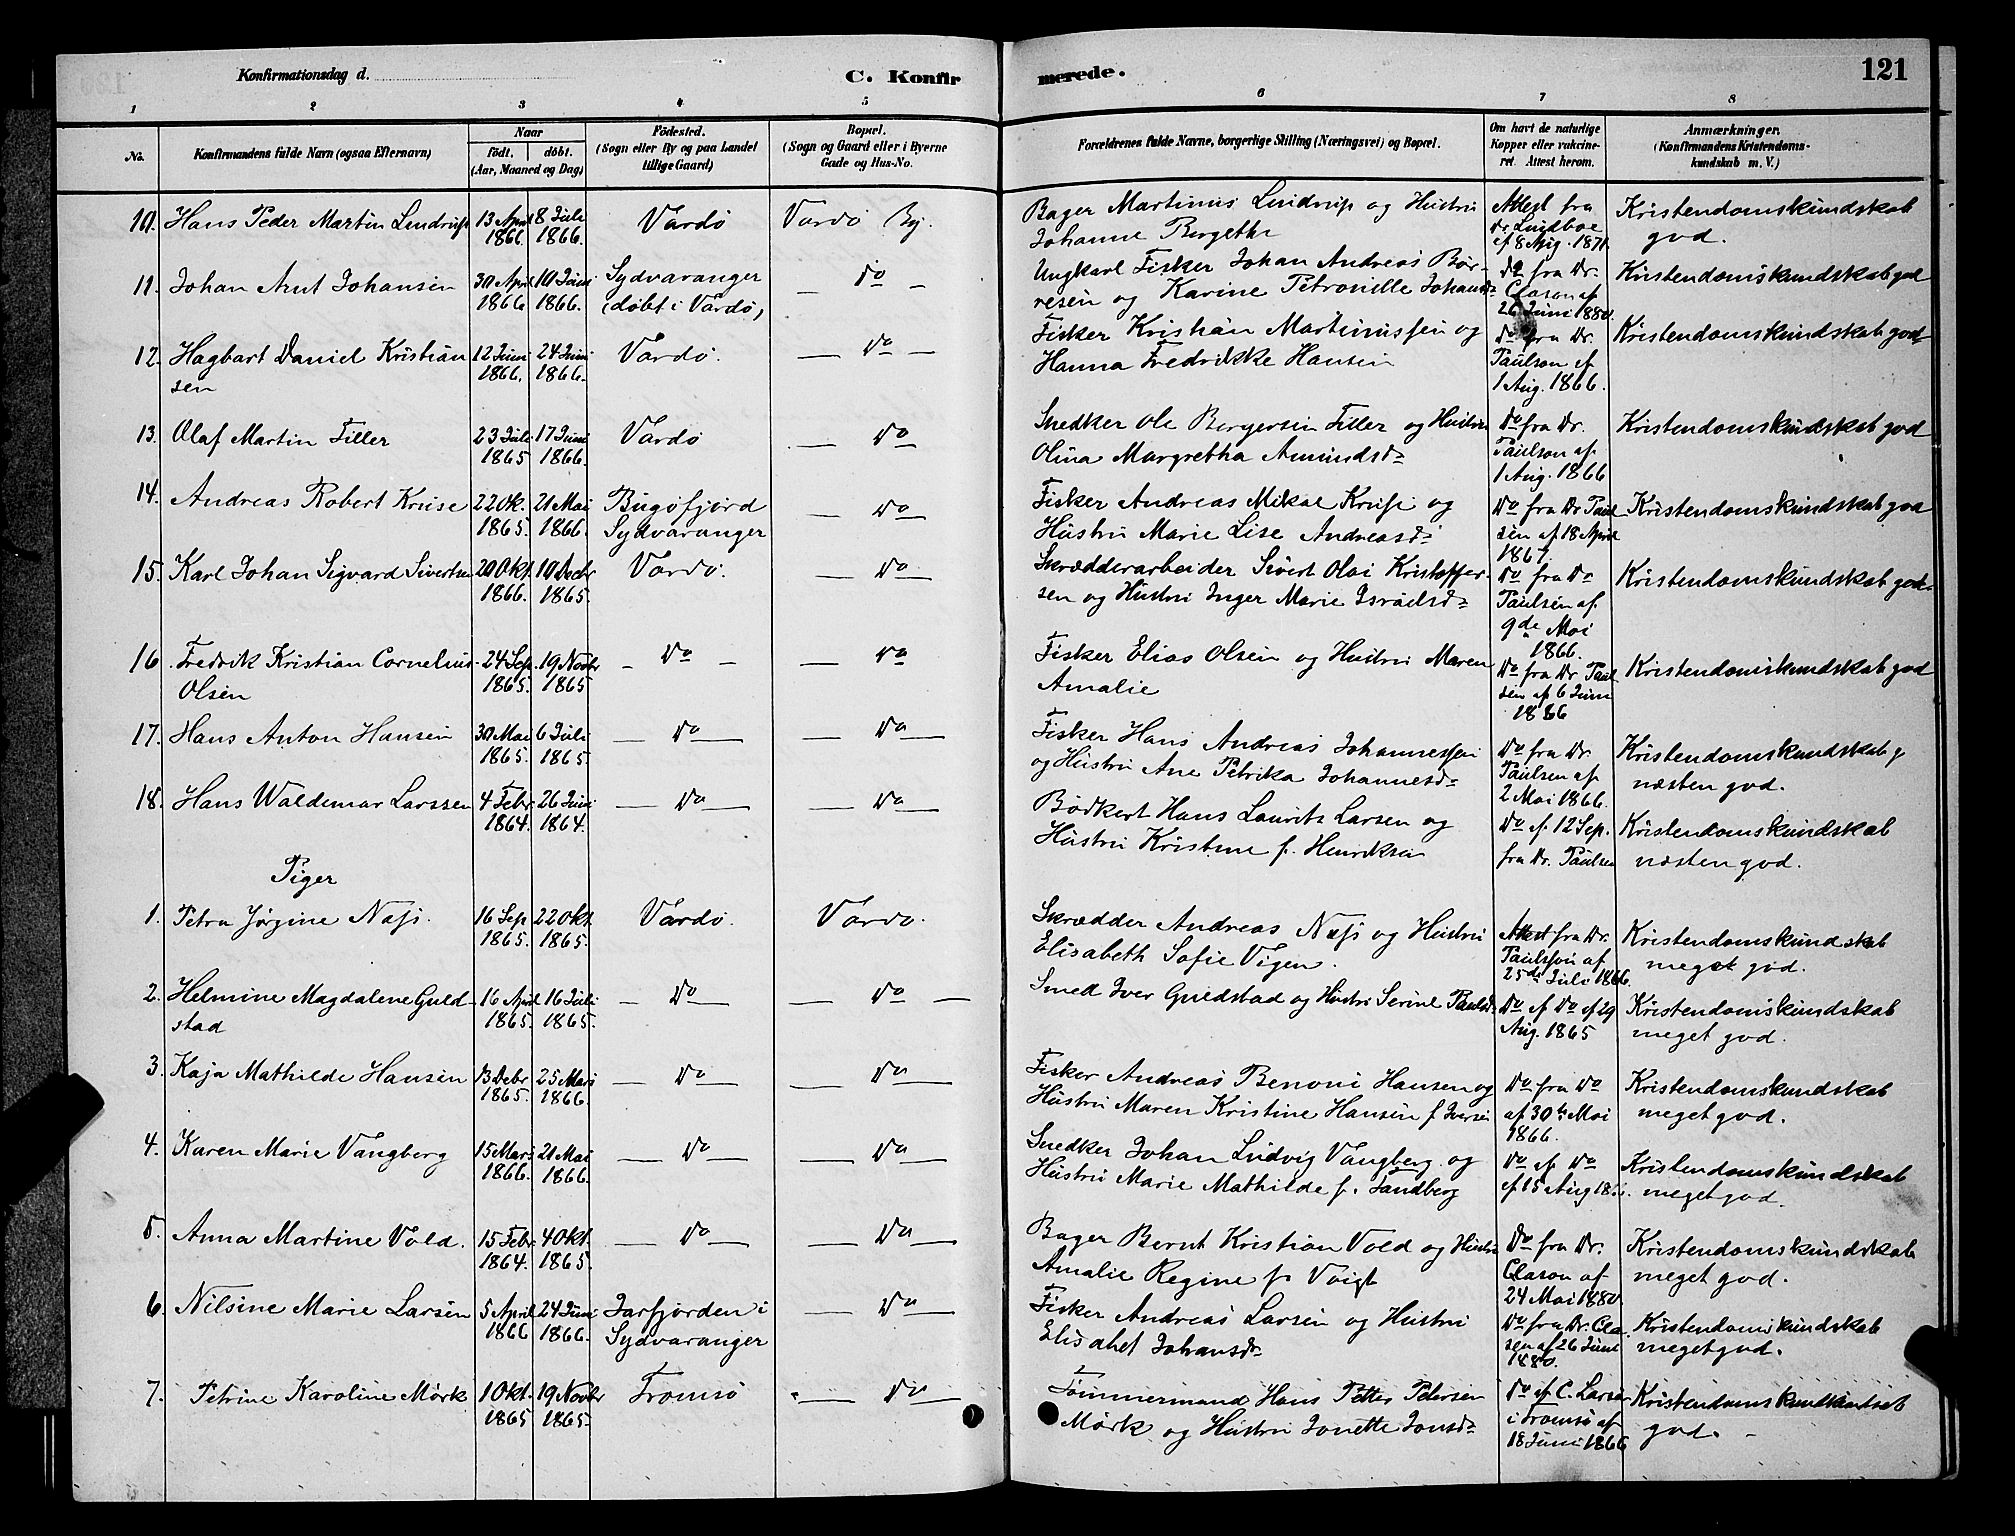 Konfirmationsdag d.
C. Konfirmerede.
121
1 2 3 4 5 6 7 8
No. Konfirmandens fulde Navn (ogsaa Efternavn) Naar født. døbt. (Aar, Maaned og Dag) Fødested. (Sogn eller By og paa Landet tillige Gaard) Bopæl. (Sogn og Gaard eller i Byerne Gade og Hus-No.) Forældrenes fulde Navne, borgerlige Stilling (Næringsvei) og Bopæl. Om havt de naturlige Kopper eller vakcineret. Attest herom. Anmærkninger. (Konfirmandens Kristendomskundskab m. V.)
10. Hans Peder Martin Lindrup 13 April 1866. 8 Juli 1866. Vardø Vardø By. Bager Martinus Lindrup og Hustru Johanne Bergethe Attest fra Dr. Lindboe af 8 Aug. 1871. Kristendomskundskab god.
11. Johan Arnt Johansen 30 April 1866 10 Juni 1866. Sydvaranger (døbt i Vardø) — Do — Ungkarl Fisker Johan Andreas Børresen og Karine Petronille Johansd. Do fra Dr. Clason af 26 Juni 1880. Kristendomskundskab god
12. Hagbart Daniel Kristiansen 12 Juni 1866. 24 Juni 1866. Vardø. — Do — Fisker Kristian Martinussen og Hanna Fredrikke Hansen Do fra Dr. Paulson af 1 Aug. 1866. Kristendomskundskab god
13. Olaf Martin Tiller 23 Juli 1865 17 Juni 1866. Vardø — Do Snedker Ole Bergersen Tiller og Hustru Olina Margretha Amundsd. Do fra Dr. Paulson af 1 Aug. 1866 Kristendomskundskab god
14. Andreas Robert Kruse 22 Ok. 1865. 21 Mai 1866. Bugøfjord Sydvaranger — Do Fisker Andreas Mikal Kruse og Hustru Marie Lise Andreasd. Do fra Dr Paulsen af 18 April 1867. Kristendomskundskab god
15. Karl Johan Sigvard Sivertsen 20 Okt. 1866. 10 Decbr 1865. Vardø. — Do Skrædderarbeider Sivert Olai Kristoffersen og Hustru Inger Marie Israelsd. Do fra Do Paulsen af 9de Mai 1866. Kristendomskundskab god
16. Fredrik Kristian Cornelius Olsen 24 Sep. 1865. 19 Novbr 1865 — Do — — Do Fisker Elias Olsen og Hustru Maren Amalie Do fra Dr. Paulsen af 6 Juni 1866 Kristendomskundskab god
17. Hans Anton Hansen 30 Mai 1865. 6 Juli 1865. — Do — — Do — Fisker Hans Andreas Johannessen og Hustru Ane Petrika Johannesd. Do fra Dr. Paulsen af 2 Mai 1866. Kristendomskundskab næsten god.
18. Hans Waldemar Larssen 4 Febr. 1864. 26 Juni 1864. — Do — — Do — Bødkert Hans Laurits Larsen og Hustru Kristine f. Henriksen Do af 12 Sep. fra Dr. Paulsen Kristendomskundskab næsten god.
Piger
1. Petra Jørgine Næss. 16 Sep 1865. 22 Okt. 1865. Vardø. Vardø. Skrædder Andreas Næss og Hustru Elisabeth Sofie Vigen. Attest fra Dr. Paulson af 25de Juli 1866. Kristendomskundskab meget god.
2. Helmine Magdalene Guldstad 16 April 1865. 16 Juli 1865. — Do — — Do — Smed Iver Guldstad og Hustru Serine Paulsd. Do af Do af 29 Aug. 1865 Kristendomskundskab meget god.
3. Kaja Mathilde Hansen 13 Debr 1865. 25 Mars 1866. — Do — — Do — Fisker Andreas Benoni Hansen og Hustru Maren Kristine Hansen f. Iversen Do fra Do af 30te Mai 1866. Kristendomskundskab meget god.
4. Karen Marie Vangberg 15 Mars 1866. 21 Mai 1866. — Do — — Do — Snedker Johan Ludvig Vangberg og Hustru Marie Mathilde f. Sandberg Do af Do af 15 Aug 18 Kristendomskundskab meget god.
5. Anna Martine Vold. 15 Febr. 1864. 4 Okt. 1865. — Do — — Do — Bager Bernt Kristian Vold og Hustru Amalie Regine f. Voigt Do fra Dr. Clason af 24 Mai 1880. Kristendomskundskab meget god.
6. Nilsine Marie Larsen 5 April 1866 24 Juni 1866. Jarfjorden i Sydvaranger — Do — Fisker Andreas Larsen og Hustru Elisabet Johansd. Do fra Dr. Clasen af 26 Juni 1880. Kristendomskundskab meget god.
7. Petrine Karoline Mørk 1 Okt. 1865 19 Novbr 1865. Tromsø — Do — Tømmermand Hans Petter Petersen Mørk og Hustru Jonette Jonsd. Do af C. Larsen i Tromsø af 18 Juni 1866 Kristendomskundskab god.